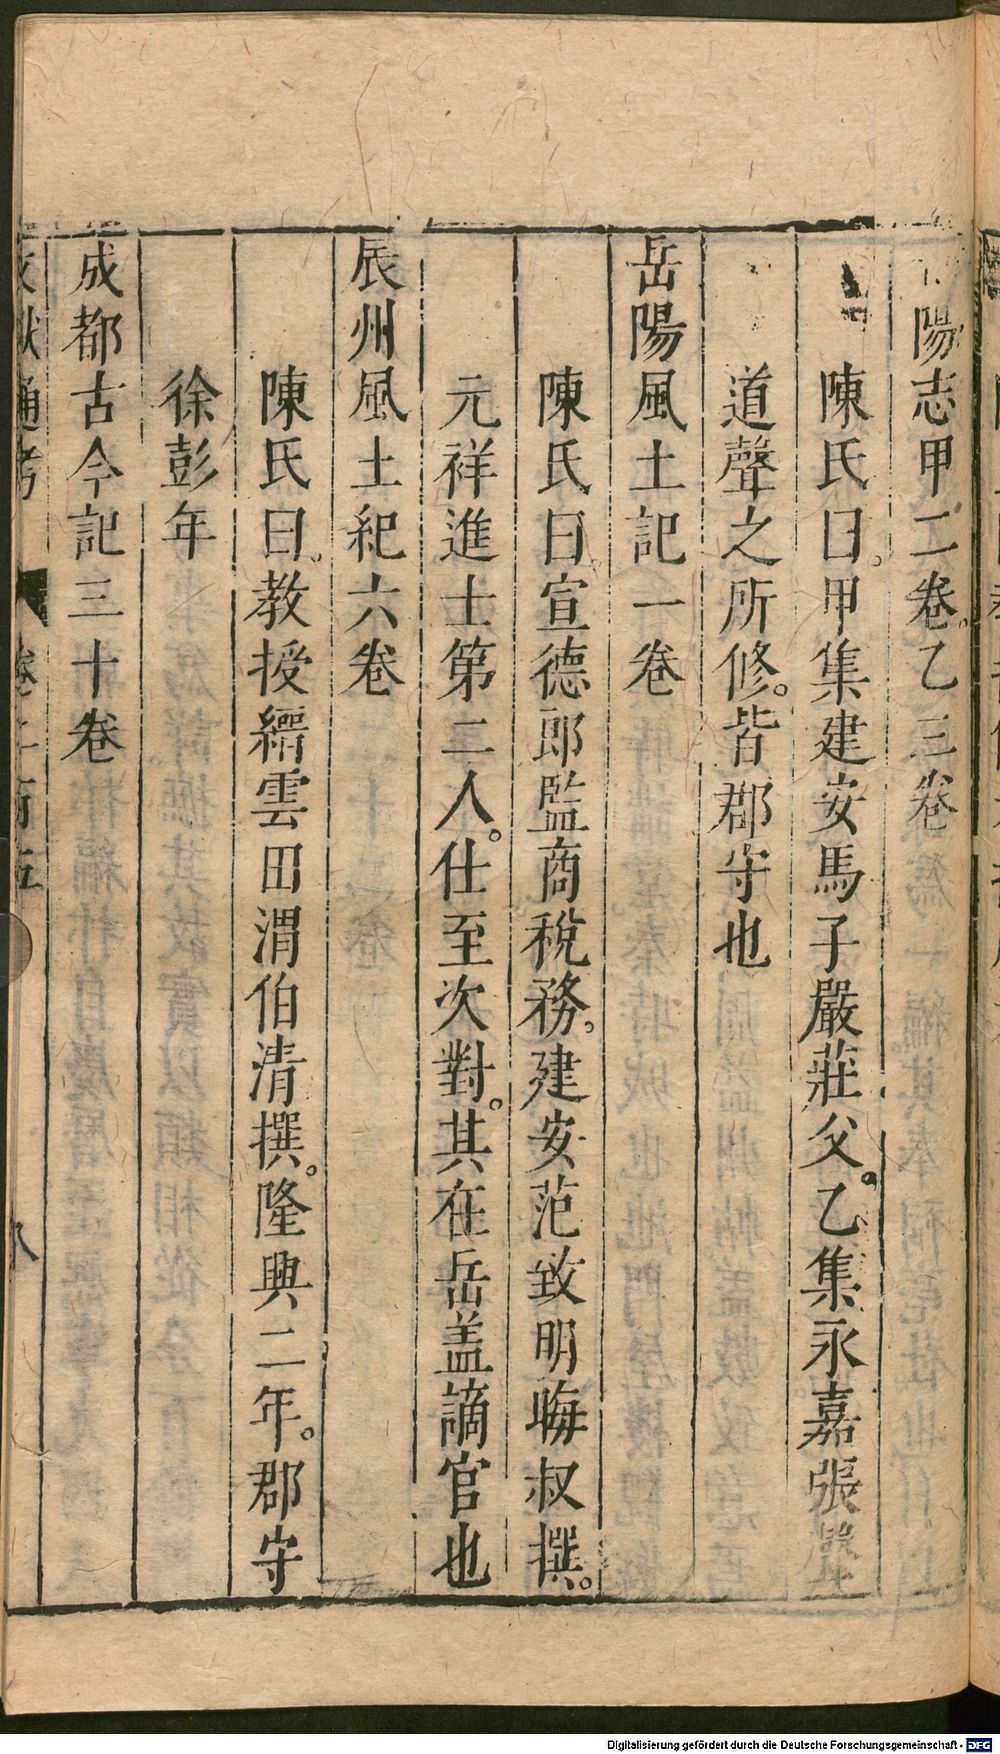 陽志甲二卷。乙三卷
陳氏曰。甲集建安馬子嚴莊父。乙集永嘉張
道聲之所修。皆郡守也
岳陽風土記一卷
陳氏曰宣德郎監商稅務。建安范致明晦叔撰。
元祥進士第二人。仕至次對。其在岳盖謫官也
辰州風土紀六卷
陳氏曰。教授縉雲田渭伯清撰。隆興二年。郡守
徐彭年
成都古今記三十卷
文獻通考 卷二百五 八
Digitalisierung gefördert durch die Deutsche Forschungsgemeinschaft - DFG